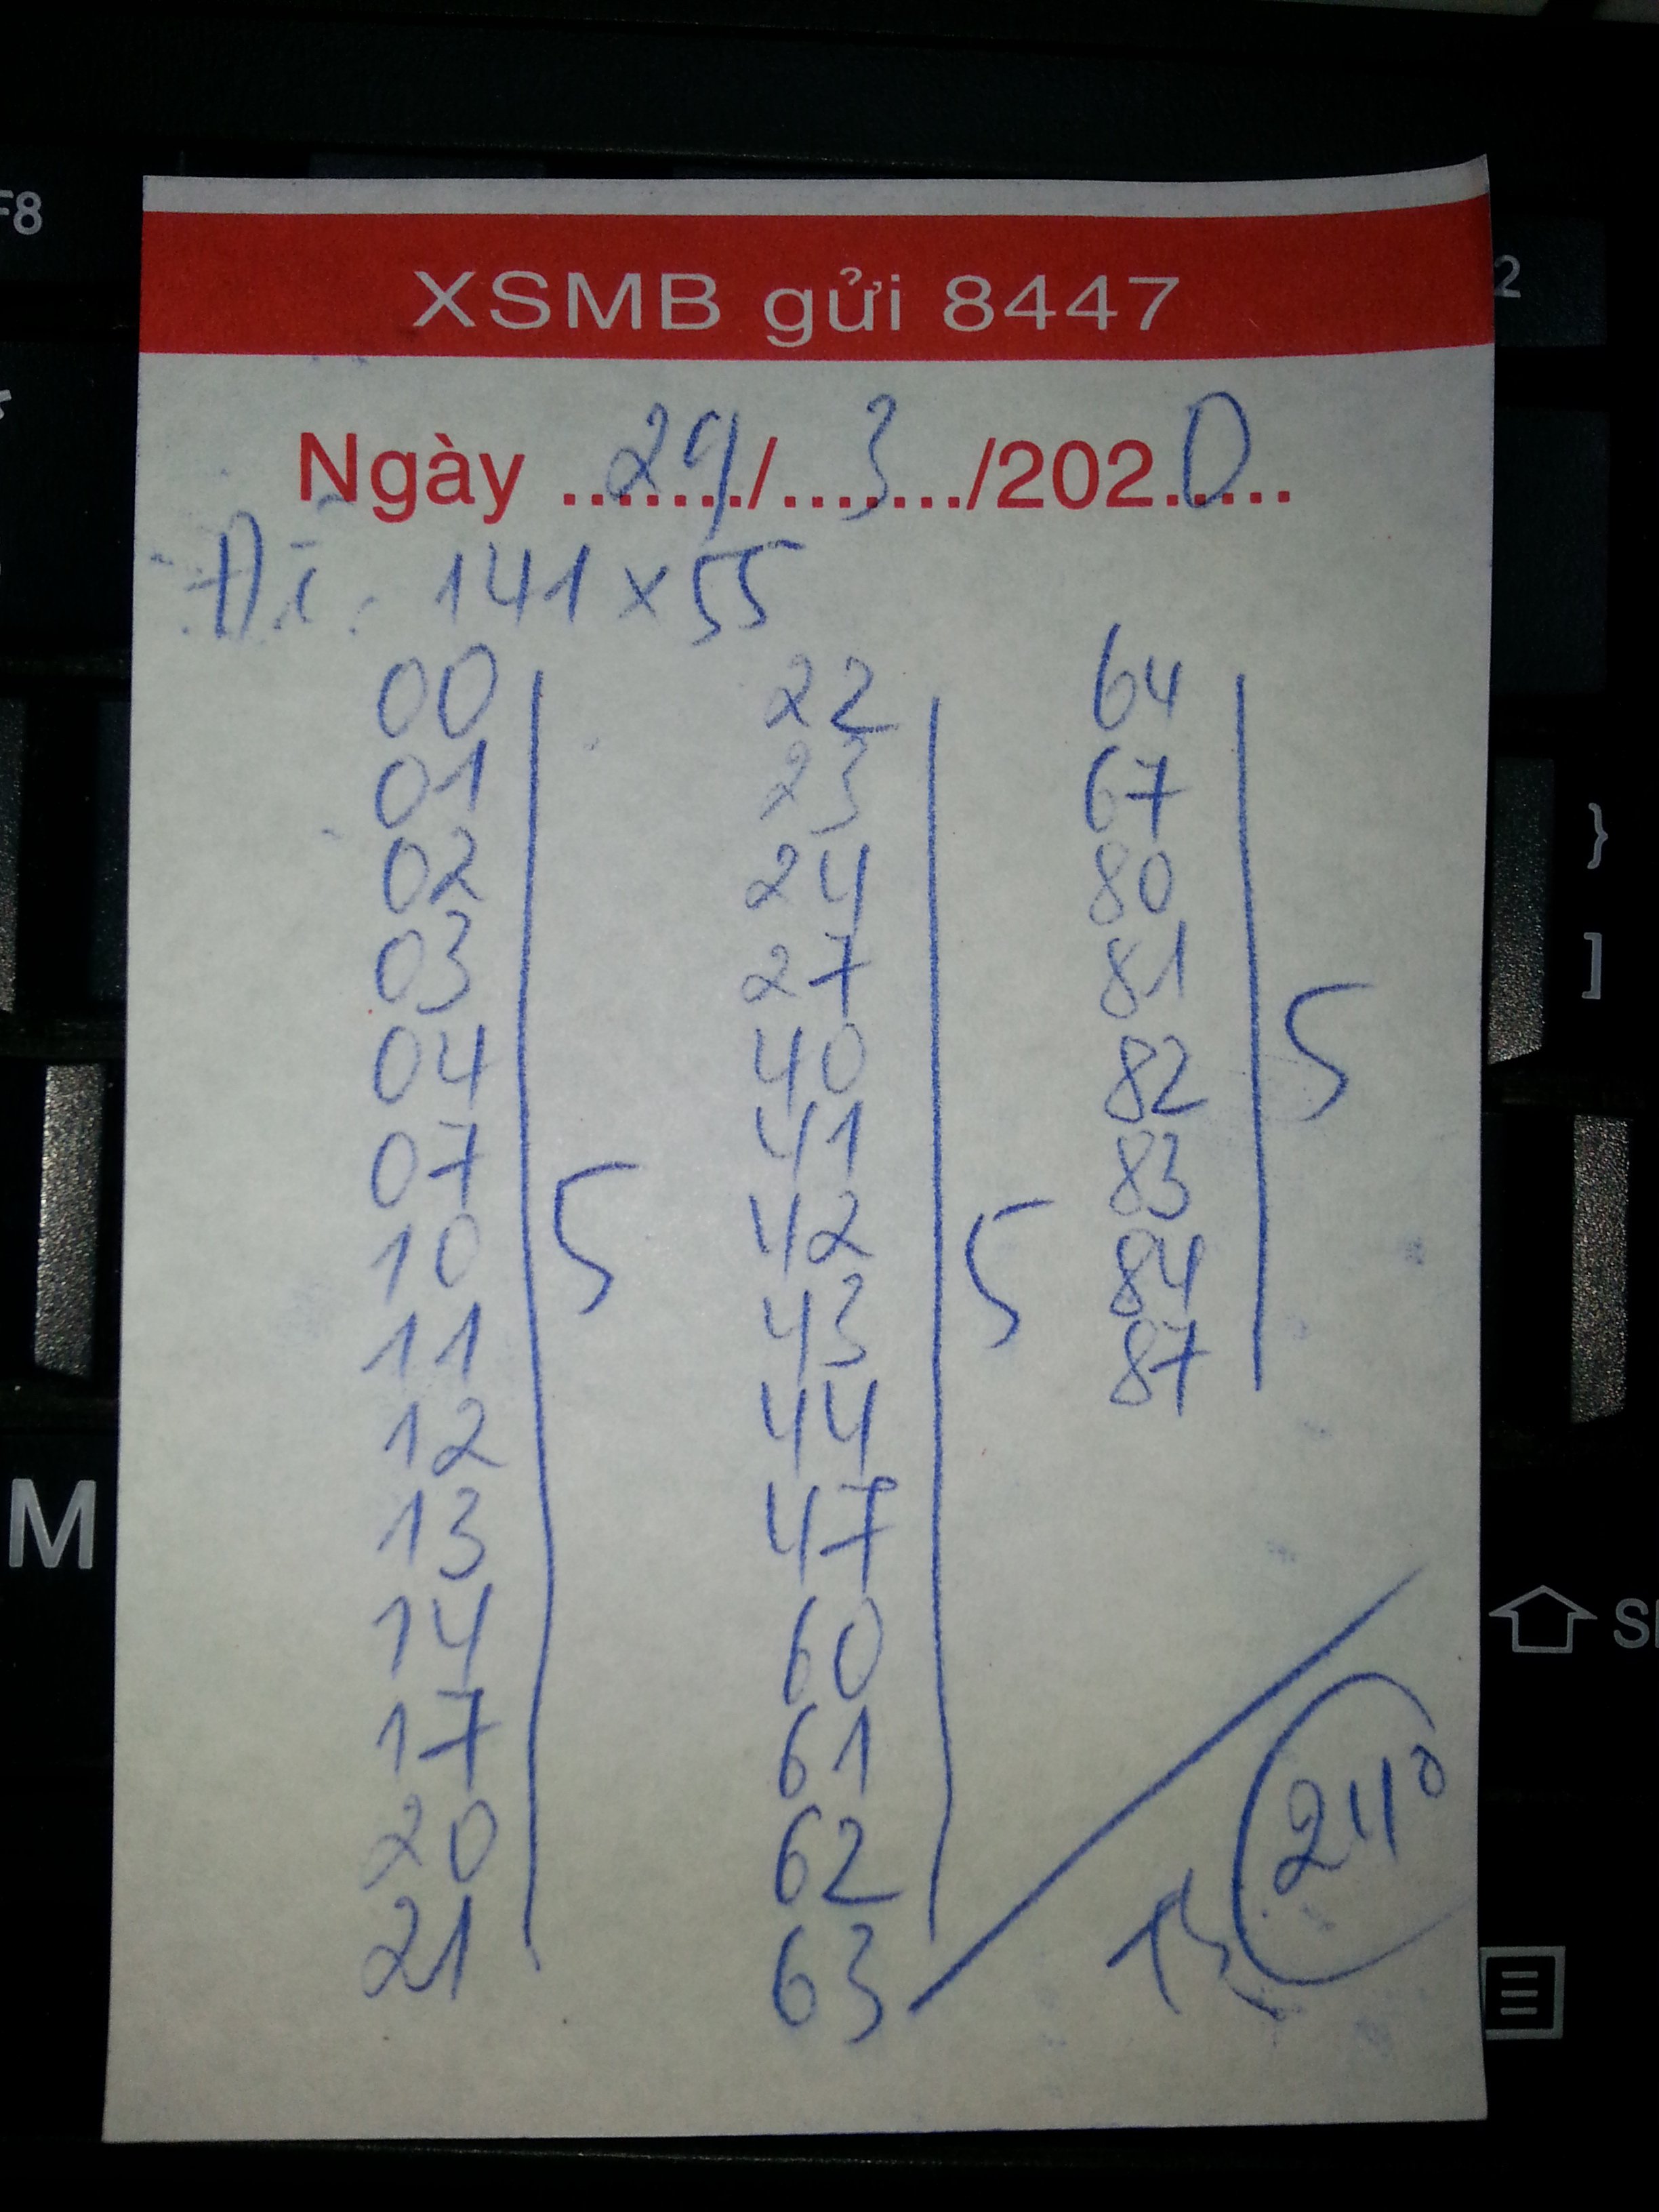 XSMB gửi 8447
Ngày 29/3/2020
141 x 55
00 22 64
01 23 67
02 24 80
03 27 81
04 40 82
07 41 83
10 42 84
11 43 87
12 44
13 47
14 60
17 61
20 62
21 63
5 5 5
F8
2
}
]
M